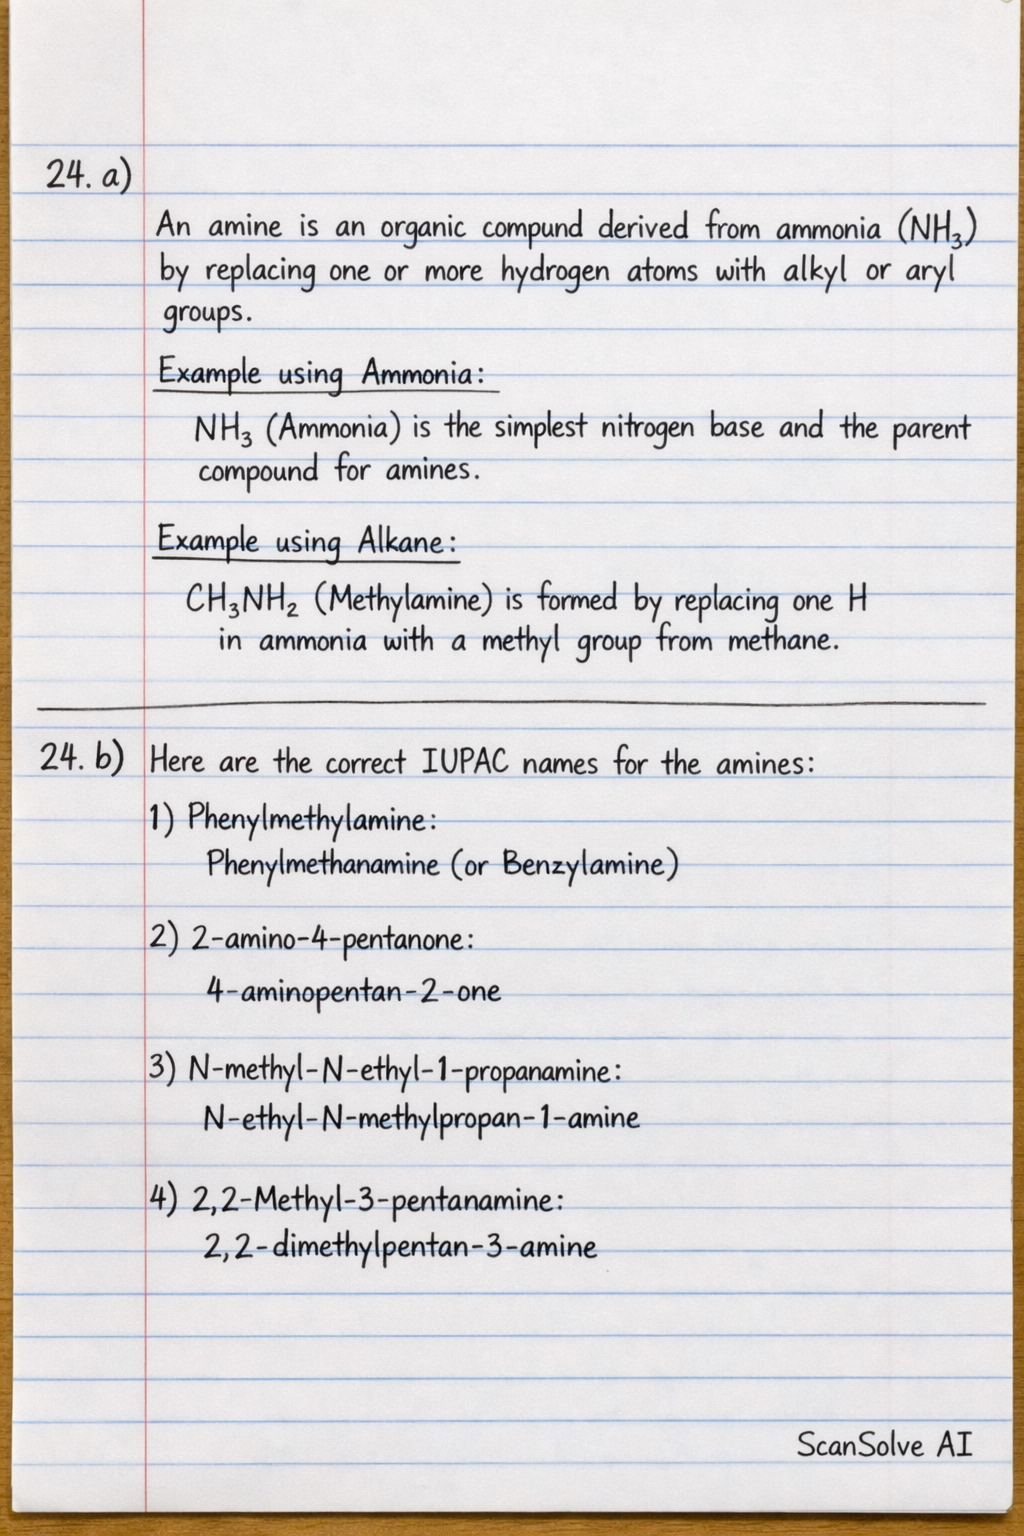 24. a)
An amine is an organic compund derived from ammonia (NH₃)
by replacing one or more hydrogen atoms with alkyl or aryl
groups.
Example using Ammonia:
NH₃ (Ammonia) is the simplest nitrogen base and the parent
compound for amines.
Example using Alkane:
CH₃NH₂ (Methylamine) is formed by replacing one H
in ammonia with a methyl group from methane.
24. b) Here are the correct IUPAC names for the amines:
1) Phenylmethylamine:
Phenylmethanamine (or Benzylamine)
2) 2-amino-4-pentanone:
4-aminopentan-2-one
3) N-methyl-N-ethyl-1-propanamine:
N-ethyl-N-methylpropan-1-amine
4) 2,2-Methyl-3-pentanamine:
2,2-dimethylpentan-3-amine
ScanSolve AI